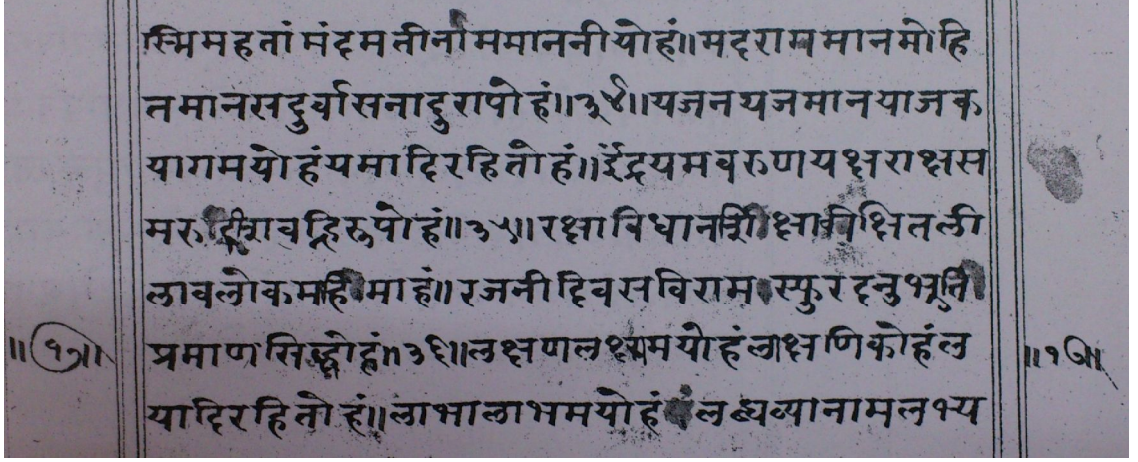 स्मिमहतां मंदमतीनां ममाननीयोहं॥मदरागमानमोहि
तमानसदुर्वासनादुरापोहं॥३४॥यजनयजमानयाजक
यागमयोहंयमादिरहितोहं॥इंद्रयमवरुणयक्षराक्षस
मरु वह्निरुपोहं॥३५॥रक्षाविधान ली
लावलोकमहिमाहं॥रजनीदिवसविराम स्फुरदनुभूति
॥१७॥ प्रमाणसिद्धोहं॥३६॥लक्षणलक्ष्यमयोहंलाक्षणिकोहंल ॥१७॥
यादिरहितोहं॥लाभालाभमयोहं लब्धव्यानामलभ्य